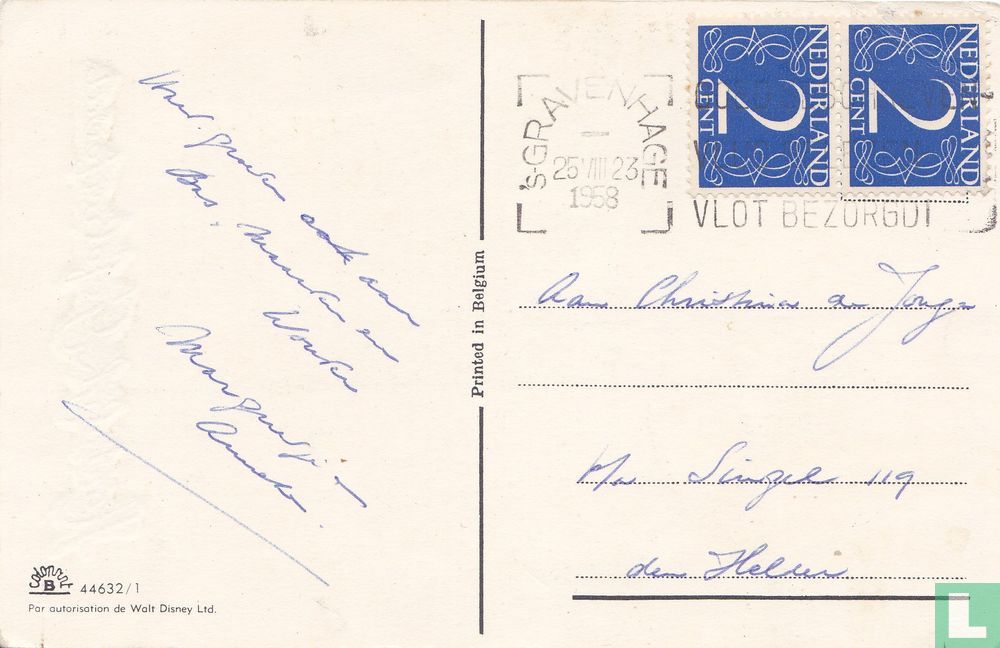 NEDERLAND
2
CENT
NEDERLAND
2
CENT
's-GRAVENHAGE
25 VIII 23
1958
VLOT BEZORGD!
groeten ook aan
Bas, Maarten en
Wouter
Margreetje
Anneke.
Printed in Belgium
Aan Christina de Jonge
p/a Singel 119
den Helder
colorprint
B
44632/1
Par autorisation de Walt Disney Ltd.
L